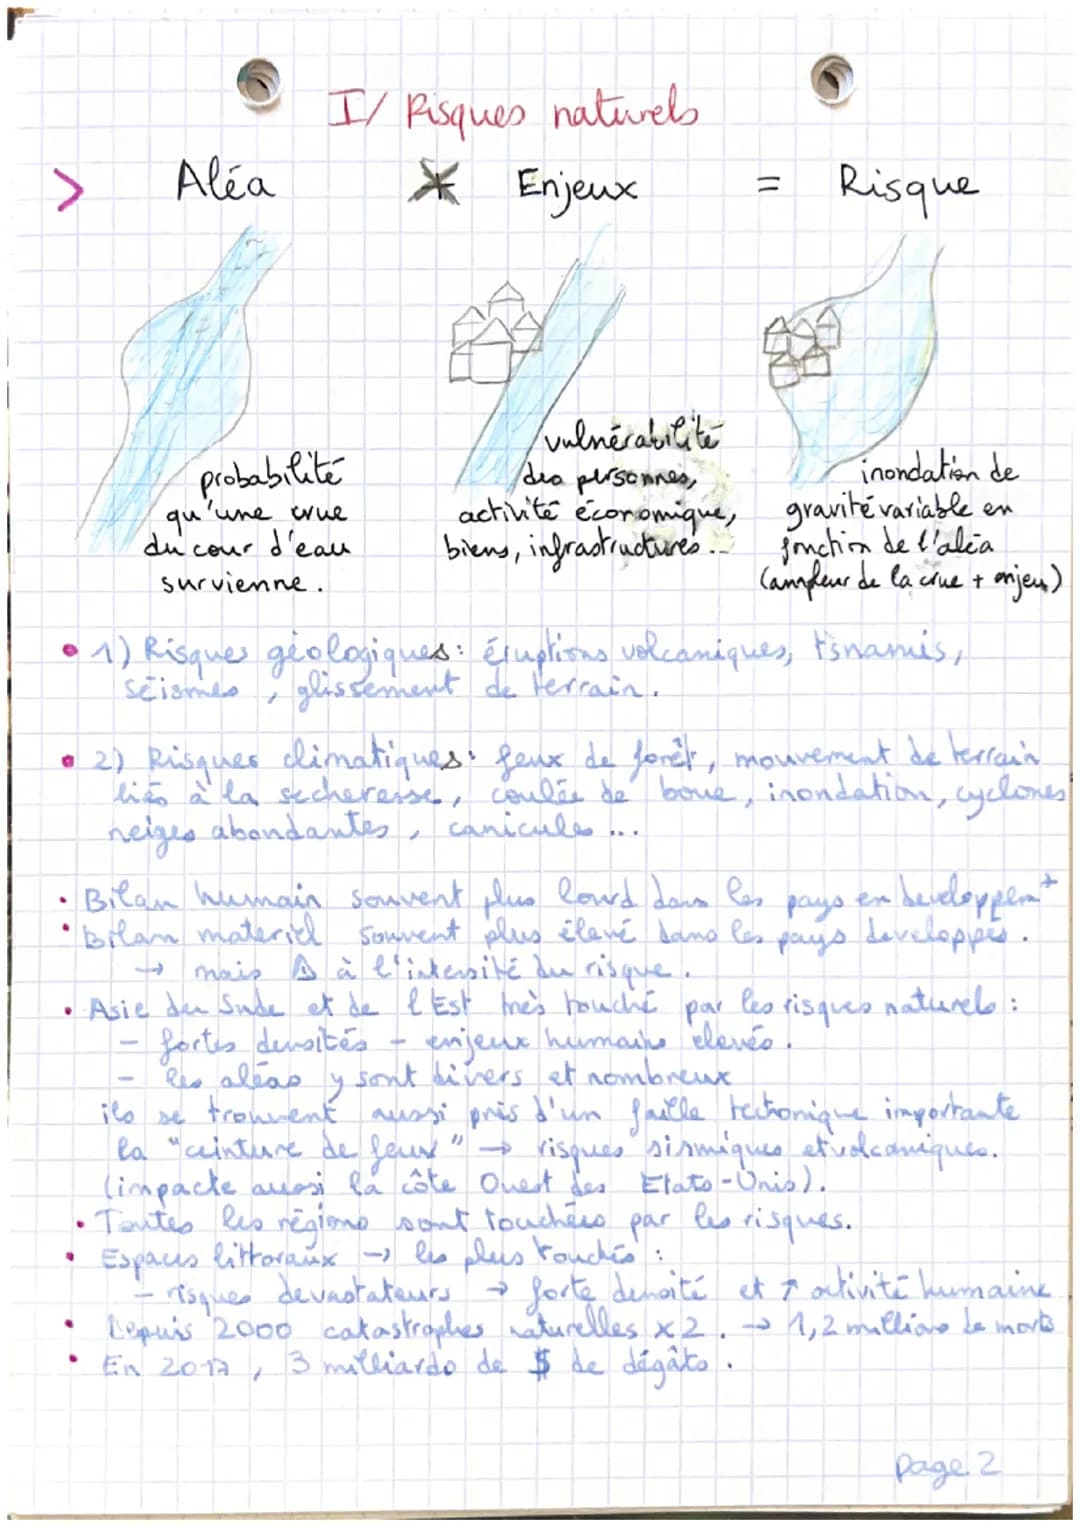 I/ Risques naturels
> Aléa * Enjeux = Risque
probabilité
qu'une crue
du cour d'eau
survienne.
vulnérabilité
des personnes,
activité économique,
biens, infrastructures...
inondation de
gravité variable en
fonction de l'aléa
(ampleur de la crue + enjeu)
• 1) Risques géologiques : éruptions volcaniques, tsnamis,
séismes, glissement de terrain.
• 2) Risques climatiques : feux de forêt, mouvement de terrain
liés à la secheresse, coulée de boue, inondation, cyclones
neiges abondantes, canicules ...
• Bilan humain souvent plus lourd dans les pays en developpemt
• Bilan materiel souvent plus élevé dans les pays developpés.
→ mais ⚠ à l'intensité du risque.
• Asie du Sude et de l'Est très touché par les risques naturels :
- fortes densités - enjeux humains elevés.
- les aléas y sont divers et nombreux
ils se trouvent aussi près d'un faille tectonique importante
la "ceinture de feux" → risques sismiques et volcaniques.
(impacte aussi la côte Ouest des Etats-Unis).
• Toutes les régions sont touchées par les risques.
• Espaces littoraux → les plus touchés :
- risques devastateurs → forte densité et ↗ activité humaine
• Depuis 2000 catastrophes naturelles x2. → 1,2 millions de morts
• En 2017, 3 milliards de $ de dégâts.
page 2